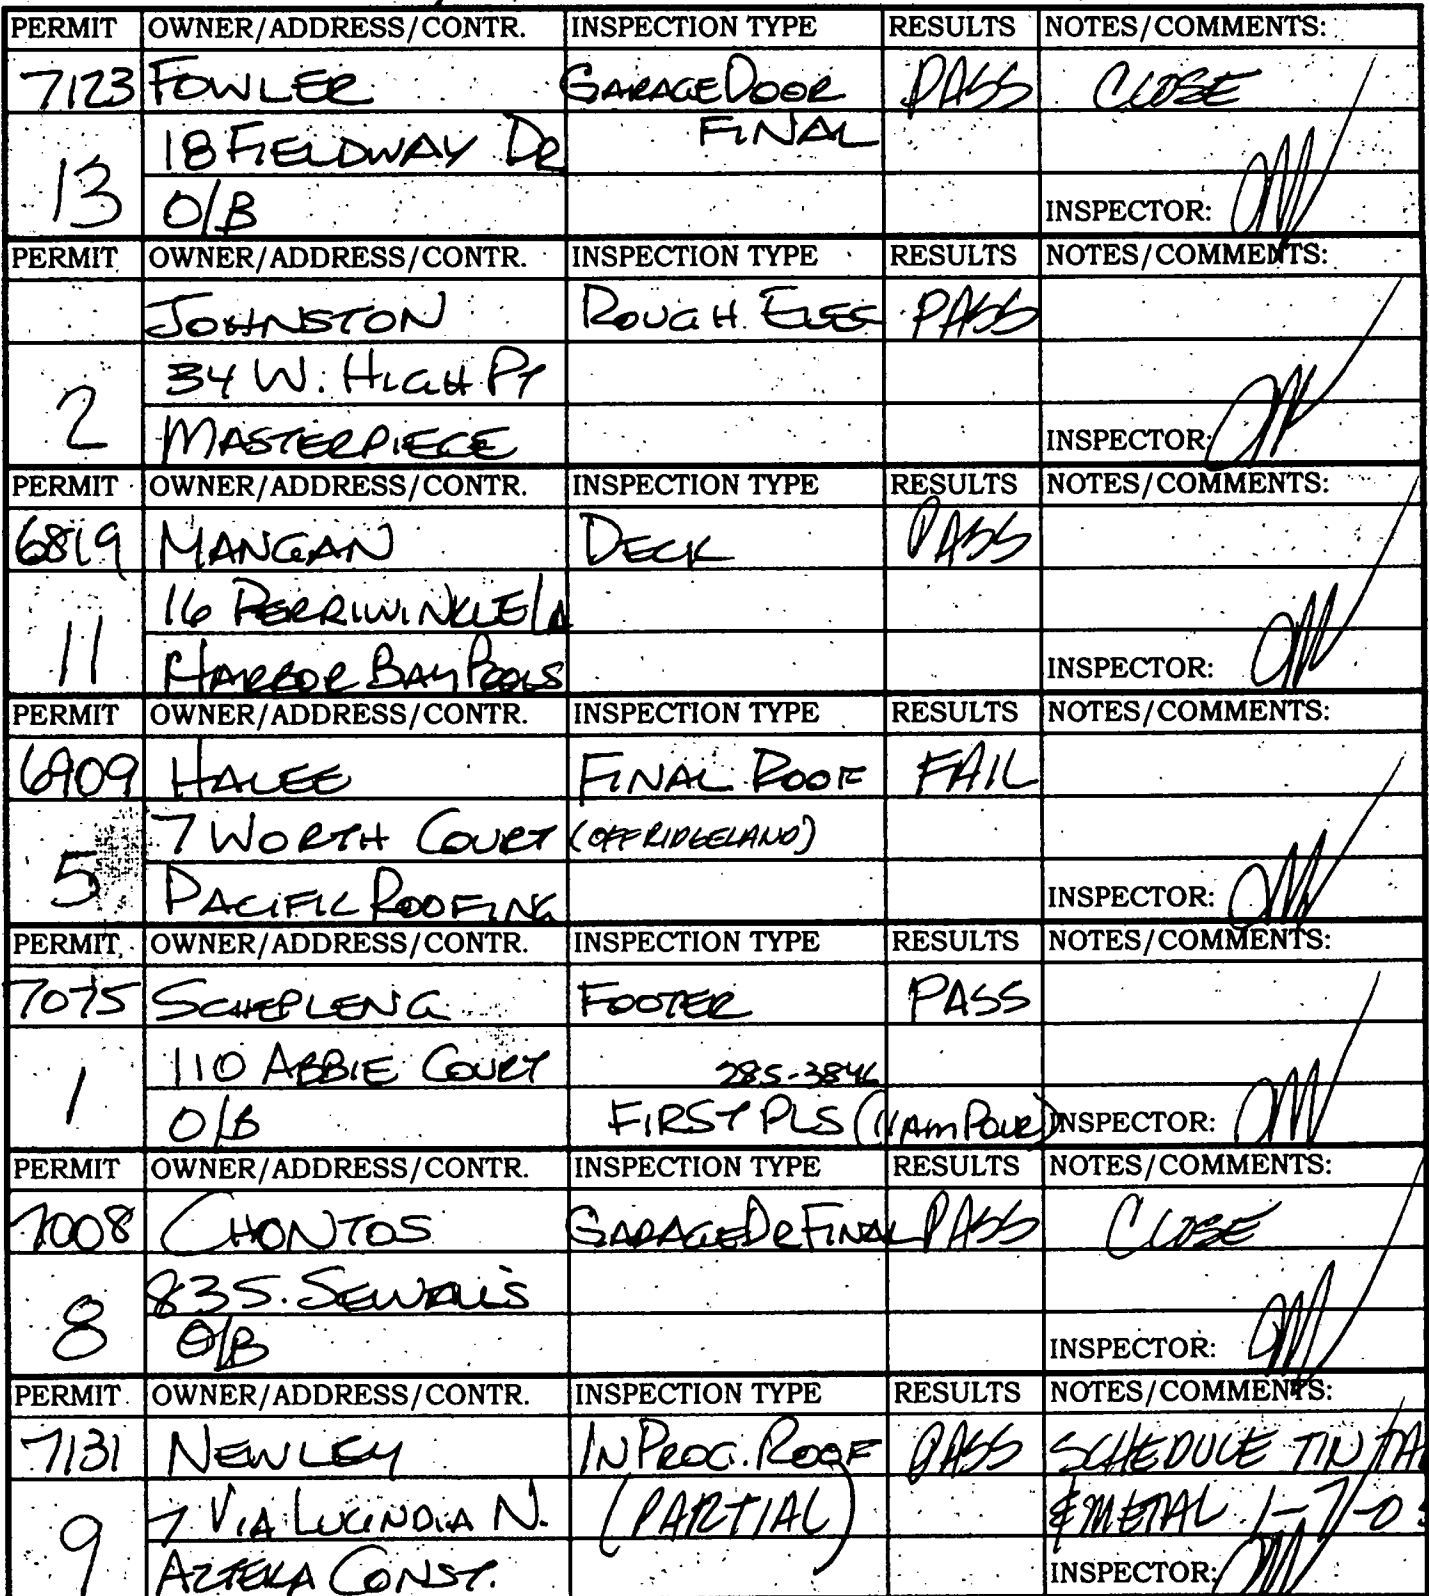 PERMIT OWNER/ADDRESS/CONTR. INSPECTION TYPE RESULTS NOTES/COMMENTS:
7123 FOWLER GARAGE DOOR PASS CLOSE
18 FIELDWAY DR FINAL
13 O/B INSPECTOR:
PERMIT OWNER/ADDRESS/CONTR. INSPECTION TYPE RESULTS NOTES/COMMENTS:
JOHNSTON ROUGH ELEC PASS
34 W. HIGH PT
2 MASTERPIECE INSPECTOR:
PERMIT OWNER/ADDRESS/CONTR. INSPECTION TYPE RESULTS NOTES/COMMENTS:
6819 MANGAN DECK PASS
16 PERRIWINKLE LA
11 HARBOR BAY POOLS INSPECTOR:
PERMIT OWNER/ADDRESS/CONTR. INSPECTION TYPE RESULTS NOTES/COMMENTS:
6909 HALEE FINAL ROOF FAIL
7 WORTH COURT (OFF RIDGELAND)
5 PACIFIC ROOFING INSPECTOR:
PERMIT OWNER/ADDRESS/CONTR. INSPECTION TYPE RESULTS NOTES/COMMENTS:
7075 SCHEPLENG FOOTER PASS
110 ABBIE COURT 285-3846
1 O/B FIRST PLS (11AM POUR) INSPECTOR:
PERMIT OWNER/ADDRESS/CONTR. INSPECTION TYPE RESULTS NOTES/COMMENTS:
7008 CHONTOS GARAGE DR FINAL PASS CLOSE
83 S. SEWALL'S
8 O/B INSPECTOR:
PERMIT OWNER/ADDRESS/CONTR. INSPECTION TYPE RESULTS NOTES/COMMENTS:
7131 NEWLEY IN PROG. ROOF PASS SCHEDULE TIN TA
7 VIA LUCINDIA N. (PARTIAL) & METAL 1-7-0
9 AZTEKA CONST. INSPECTOR: